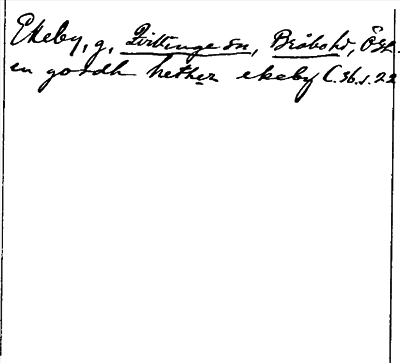 Ekeby, g, Kvillinge sn, Bråbo hd, Ög.
en gordh hether ekeby C. 36. s. 22